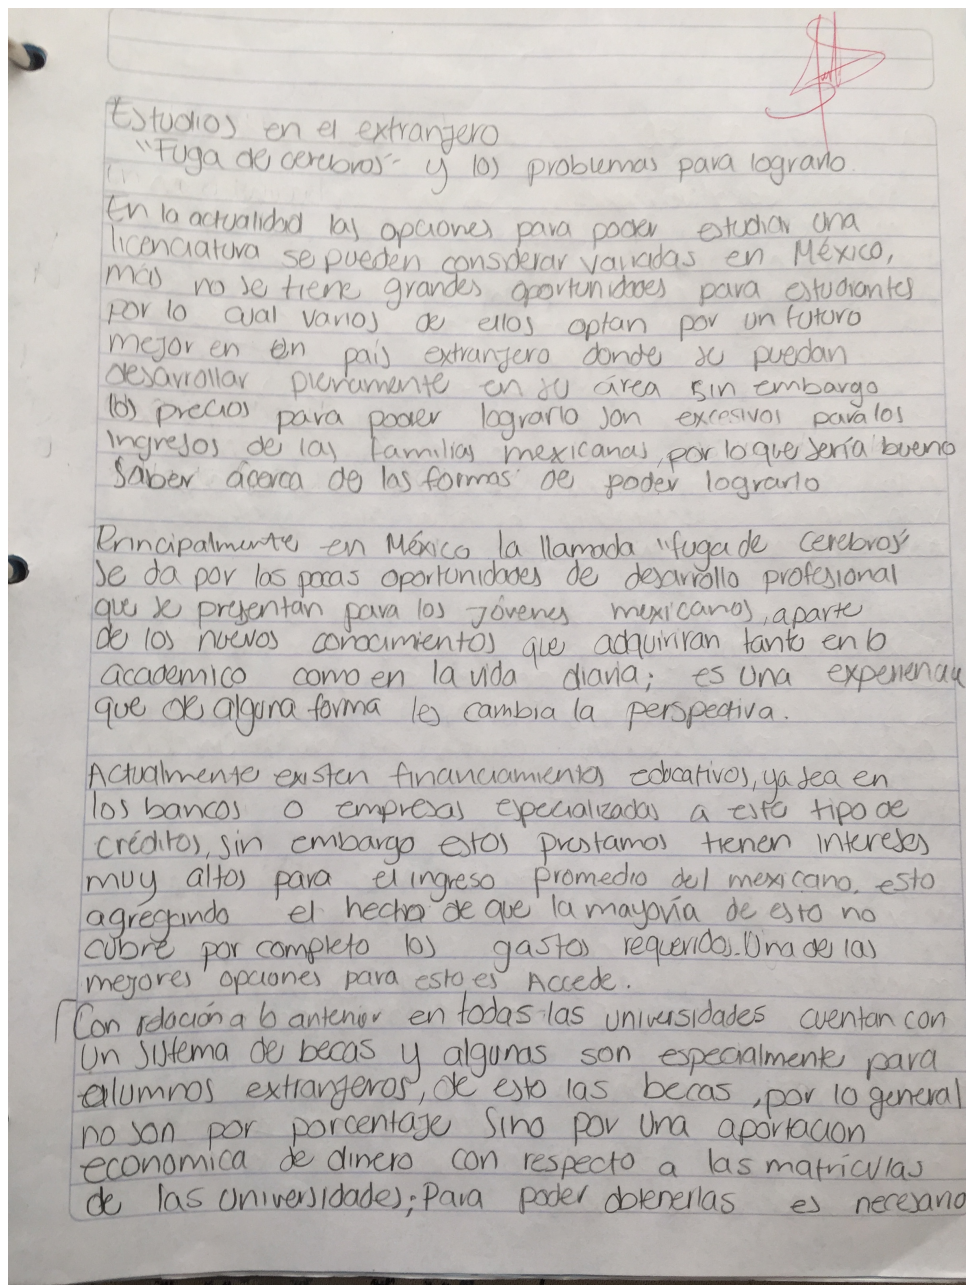 Estudios en el extranjero
"Fuga de cerebros" y los problemas para lograrlo
En la actualidad las opciones para poder estudiar una
licenciatura se pueden considerar variadas en México,
más no se tiene grandes oportunidades para estudiantes
por lo cual varios de ellos optan por un futuro
mejor en un país extranjero donde se puedan
desarrollar plenamente en su área sin embargo
los precios para poder lograrlo son excesivos para los
ingresos de las familias mexicanas, por lo que sería bueno
saber ácerca de las formas de poder lograrlo
Principalmente en México la llamada "fuga de cerebros"
se da por las pocas oportunidades de desarrollo profesional
que se presentan para los jóvenes mexicanos, aparte
de los nuevos conocimientos que adquiriran tanto en lo
academico como en la vida diaria; es una experiencia
que de alguna forma les cambia la perspectiva.
Actualmente existen financiamientos educativos, ya sea en
los bancos o empresas especializadas a este tipo de
créditos, sin embargo estos prestamos tienen intereses
muy altos para el ingreso promedio del mexicano. esto
agregando el hecho de que la mayoría de esto no
cubre por completo los gastos requeridos. Una de las
mejores opciones para esto es Accede.
Con relación a lo anterior en todas las universidades cuentan con
un sistema de becas y algunas son especialmente para
alumnos extranjeros, de esto las becas, por lo general
no son por porcentaje sino por una aportacion
economica de dinero con respecto a las matrículas
de las universidades; Para poder obtenerlas es necesario